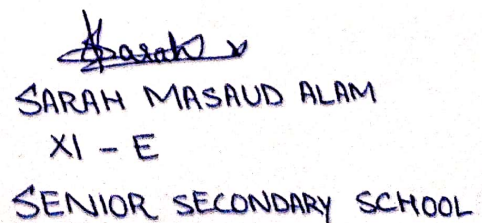 Sarah
SARAH MASAUD ALAM
XI - E
SENIOR SECONDARY SCHOOL